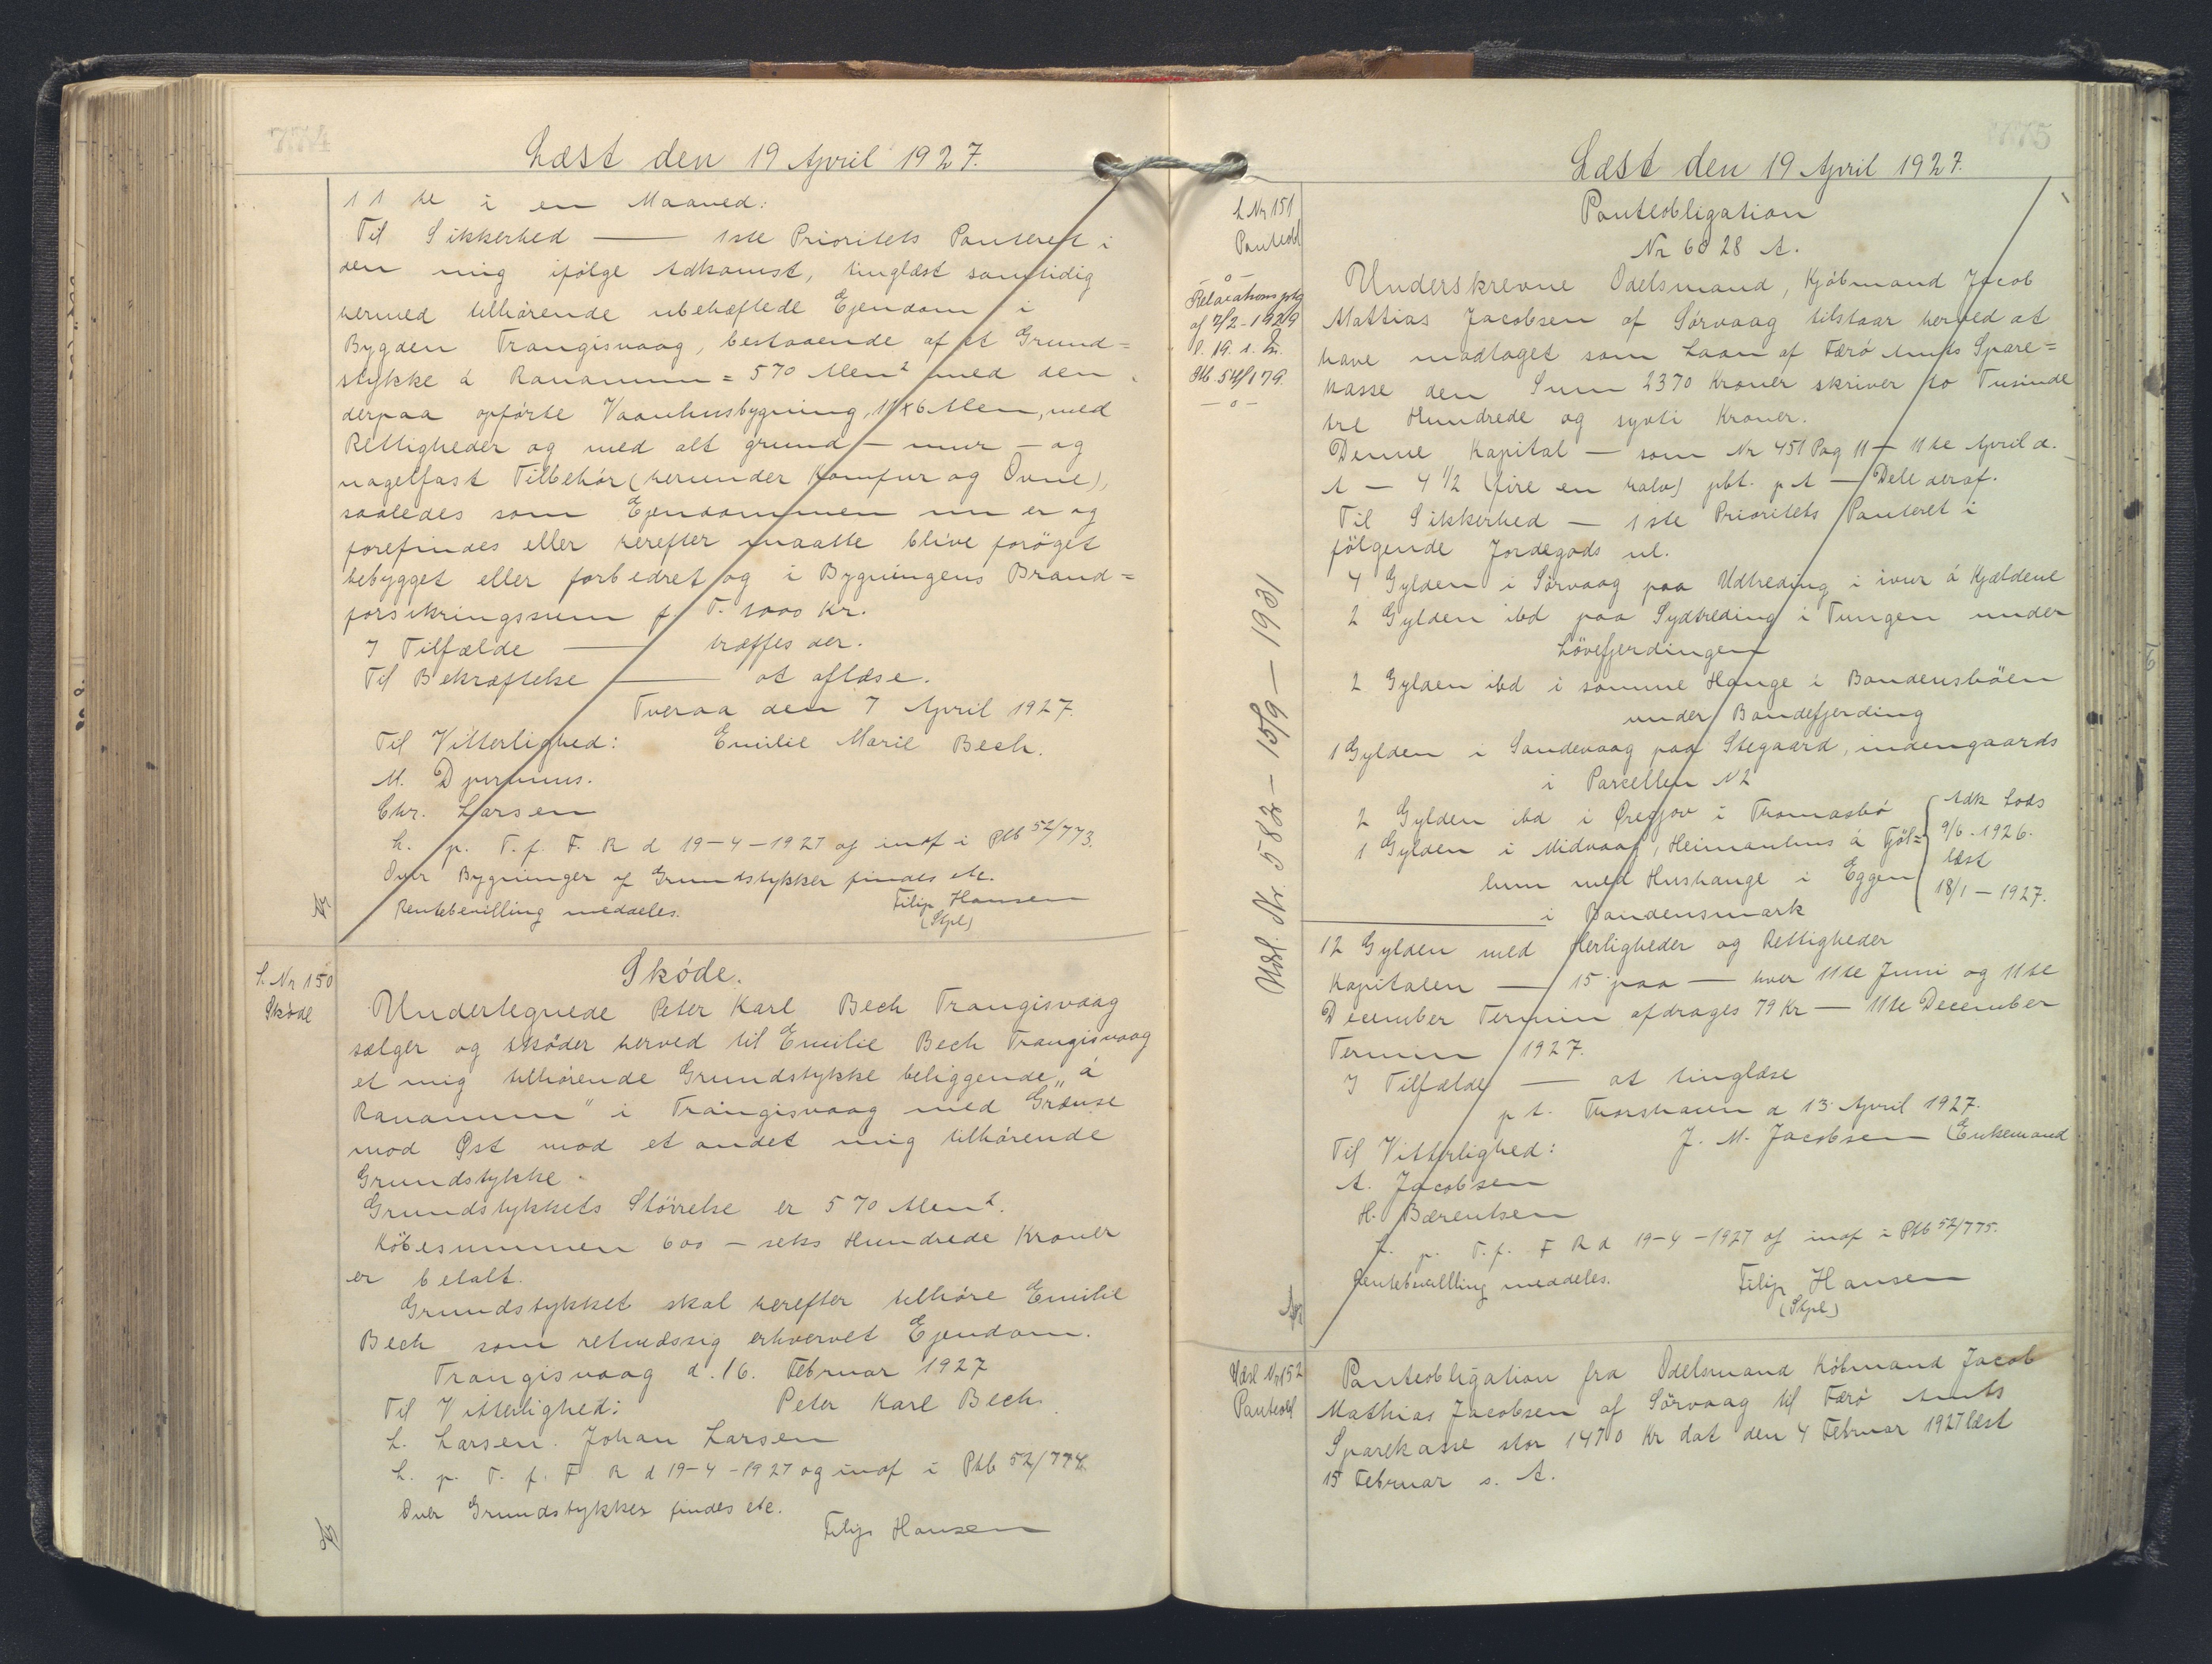 774
Læst den 19 April 1927.
11te i en Maaned:
Til Sikkerhed — 1ste Prioritets Panteret i
den mig ifølge Adkomst, tinglæst samtidig
hermed tilhørende ubehæftede Ejendom i
Bygden Trangisvaag, bestaaende af et Grund=
stykke á Rananum = 570 Alen² med den
derpaa opførte Vaanhusbygning, 11x6 Alen, med
Rettigheder og med alt grund - mur - og
nagelfast Tilbehør (herunder Komfur og Ovne),
saaledes som Ejendommen nu er og
forefindes eller herefter maatte blive forøget
bebygget eller forbedret og i Bygningens Brand=
forsikringssum f. T. 1000 Kr.
I Tilfælde — træffes der.
Til Bekræftelse — at aflæse.
Tveraa den 7 April 1927.
Til Vitterlighed: Emilie Marie Bech.
M. Djurhuus.
Chr. Larsen
L. p. T. f. F. R d 19-4-1927 og indf i Ptb 52/773.
Over Bygninger og Grundstykker findes etc.
Rentebevilling meddeles. Filip Hansen
(Stpl)
L. Nr 150
Skøde
Skøde.
Undertegnede Peter Karl Bech Trangisvaag
sælger og skøder herved til Emilie Bech Trangisvaag
et mig tilhørende Grundstykke beliggende „á
Rananum" i Trangisvaag med Grænse
mod Øst mod et andet mig tilhørende
Grundstykke.
Grundstykkets Størrelse er 570 Alen².
Købesummen 600 - seks Hundrede Kroner
er betalt.
Grundstykket skal herefter tilhøre Emilie
Bech som retmæssig erhvervet Ejendom.
Trangisvaag d. 16. Februar 1927
Til Vitterlighed: Peter Karl Bech.
L. Larsen. Johan Larsen
L. p. T. f. F R d 19-4-1927 og indf i Ptb 52/774.
Over Grundstykker findes etc.
Filip Hansen
775
Læst den 19 April 1927.
L Nr 151
Panteobl
—o—
Relaxations påtg
af 7/2-1929
l. 19. s. M.
Ptb. 54/179.
—o—
Udsl. Nr. 582 - 15/9 - 1931
Panteobligation
Nr 6028 A.
Underskrevne Odelsmand, Kjøbmand Jacob
Mathias Jacobsen af Sørvaag tilstaar herved at
have modtaget som Laan af Færø Amts Spare=
kasse den Sum 2370 Kroner skriver to Tusinde
tre Hundrede og syvti Kroner.
Denne Kapital — som Nr 451 Pag 11 — 11te April d.
A — 4 1/2 (fire en halv) pCt. p A — Dele deraf.
Til Sikkerhed — 1ste Prioritets Panteret i
følgende Jordegods nl.
4 Gylden i Sørvaag paa Udtreding i ivur á Kjældene
2 Gylden ibd paa Sydtreding i Tungen under
Løvefjerdingen
2 Gylden ibd i samme Hauge i Bondensbøen
under Bondefjerding
1 Gylden i Sandevaag paa Stegaard, indengaards
i Parcellen N2
2 Gylden ibd i Øregjov i Thomasbø
1 Gylden i Midvaag, Heimanhus á Tjøl=
lum med Hushauge i Eggen
i Bondensmark
Adk Lods
9/6-1926.
læst
18/1-1927.
12 Gylden med Herligheder og Rettigheder
Kapitalen — 15 paa — hver 11te Juni og 11te
December Termin afdrages 79 Kr — 11te December
Termin 1927.
I Tilfælde — at tinglæse
p t. Thorshavn d 13 April 1927.
Til Vitterlighed: J. M. Jacobsen Enkemand
A. Jacobsen
H. Bærentsen
L. p. T. f. F R d 19-4-1927 og indf i Ptb 52/775.
Rentebevilling meddeles. Filip Hansen
(Stpl)
Udsl Nr 152
Panteobl
Panteobligation fra Odelsmand Købmand Jacob
Mathias Jacobsen af Sørvaag til Færø Amts
Sparekasse stor 1470 Kr dat den 4 Februar 1927 læst
15 Februar s. A.